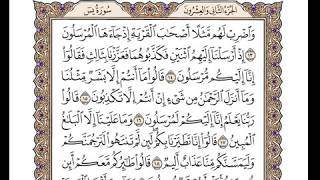 سُورَةُ يسٓ الجُزْءُ الثَّانِي وَالعِشْرُونَ
وَٱضْرِبْ لَهُم مَّثَلًا أَصْحَٰبَ ٱلْقَرْيَةِ إِذْ جَآءَهَا ٱلْمُرْسَلُونَ
١٣ إِذْ أَرْسَلْنَآ إِلَيْهِمُ ٱثْنَيْنِ فَكَذَّبُوهُمَا فَعَزَّزْنَا بِثَالِثٍ فَقَالُوٓا۟
إِنَّآ إِلَيْكُم مُّرْسَلُونَ ١٤ قَالُوا۟ مَآ أَنتُمْ إِلَّا بَشَرٌ مِّثْلُنَا
وَمَآ أَنزَلَ ٱلرَّحْمَٰنُ مِن شَىْءٍ إِنْ أَنتُمْ إِلَّا تَكْذِبُونَ ١٥ قَالُوا۟
رَبُّنَا يَعْلَمُ إِنَّآ إِلَيْكُمْ لَمُرْسَلُونَ ١٦ وَمَا عَلَيْنَآ إِلَّا ٱلْبَلَٰغُ
ٱلْمُبِينُ ١٧ قَالُوٓا۟ إِنَّا تَطَيَّرْنَا بِكُمْ لَئِن لَّمْ تَنتَهُوا۟ لَنَرْجُمَنَّكُمْ
وَلَيَمَسَّنَّكُم مِّنَّا عَذَابٌ أَلِيمٌ ١٨ قَالُوا۟ طَٰٓئِرُكُم مَّعَكُمْ أَئِن